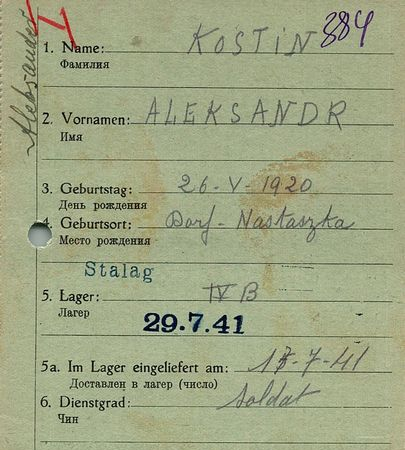 Aleksander
1. Name: KOSTIN 384
Фамилия
2. Vornamen: ALEKSANDR
Имя
3. Geburtstag: 26-V-1920
День рождения
4. Geburtsort: Dorf-Nastaszka
Место рождения
Stalag
5. Lager: IV B
Лагер
29.7.41
5a. Im Lager eingeliefert am: 17-7-41
Доставлен в лагер (число)
6. Dienstgrad: Soldat
Чин